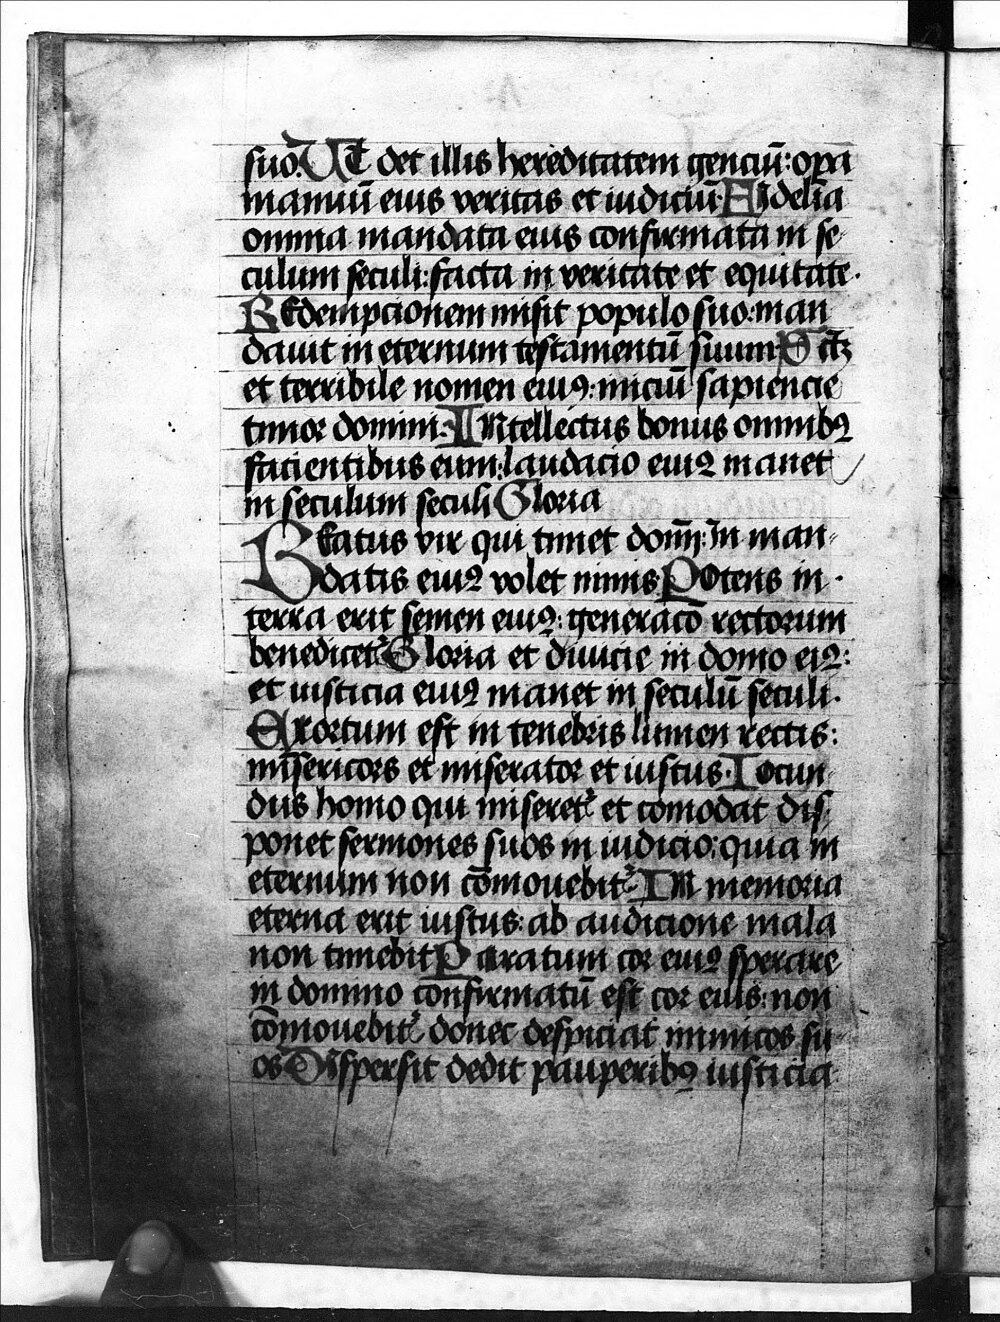 suo. Ut det illis hereditatem genciū: opa
manuū eius veritas et iudiciū. Fidelia
omnia mandata eius confirmata in se
culum seculi: facta in veritate et equitate.
Redempcionem misit populo suo: man
davit in eternum testamentū suum Sctꝫ
et terribile nomen eiuꝰ: iniciū sapiencie
timor domini. Intellectus bonus omnibꝰ
facientibus eum: laudacio eiuꝰ manet
in seculum seculi Gloria
Beatus vir qui timet domī: in man⸗
datis eiuꝰ volet nimis Potens in ·
terra erit semen eiuꝰ: generacō rectorum
benedicet᷑ Gloria et divicie in domo eiꝰ:
et iusticia eiuꝰ manet in seculū seculi.
Exortum est in tenebris lumen rectis:
misericors et miserator et iustus. Iocun
dus homo qui miseret᷑ et comodat dis
ponet sermones suos in iudicio: quia in
eternum non cōmouebit᷑. In memoria
eterna erit iustus: ab audicione mala
non timebit Paratum cor eiuꝰ sperare
in domino confirmatū est cor eius: non
cōmouebit᷑ donec despiciat inimicos su
os Dispersit dedit pauperibꝰ iusticia